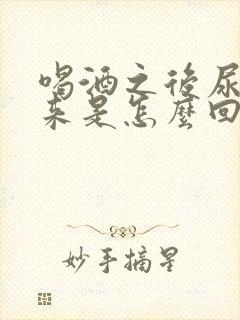 喝酒之後尿
來是怎麼回
妙手摘星